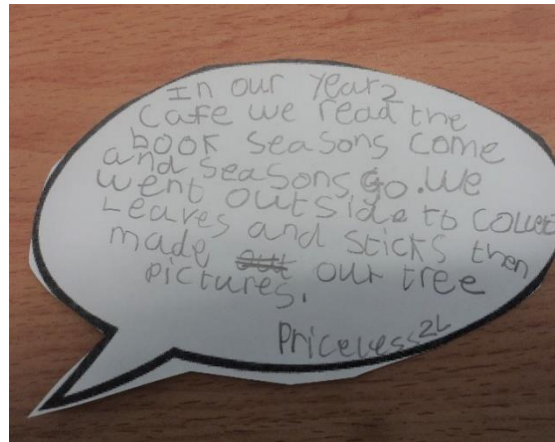 In our Year 2
Cafe we read the
book seasons come
and seasons Go. We
went outside to collect
Leaves and sticks then
made our tree
pictures.
Priceless 2L